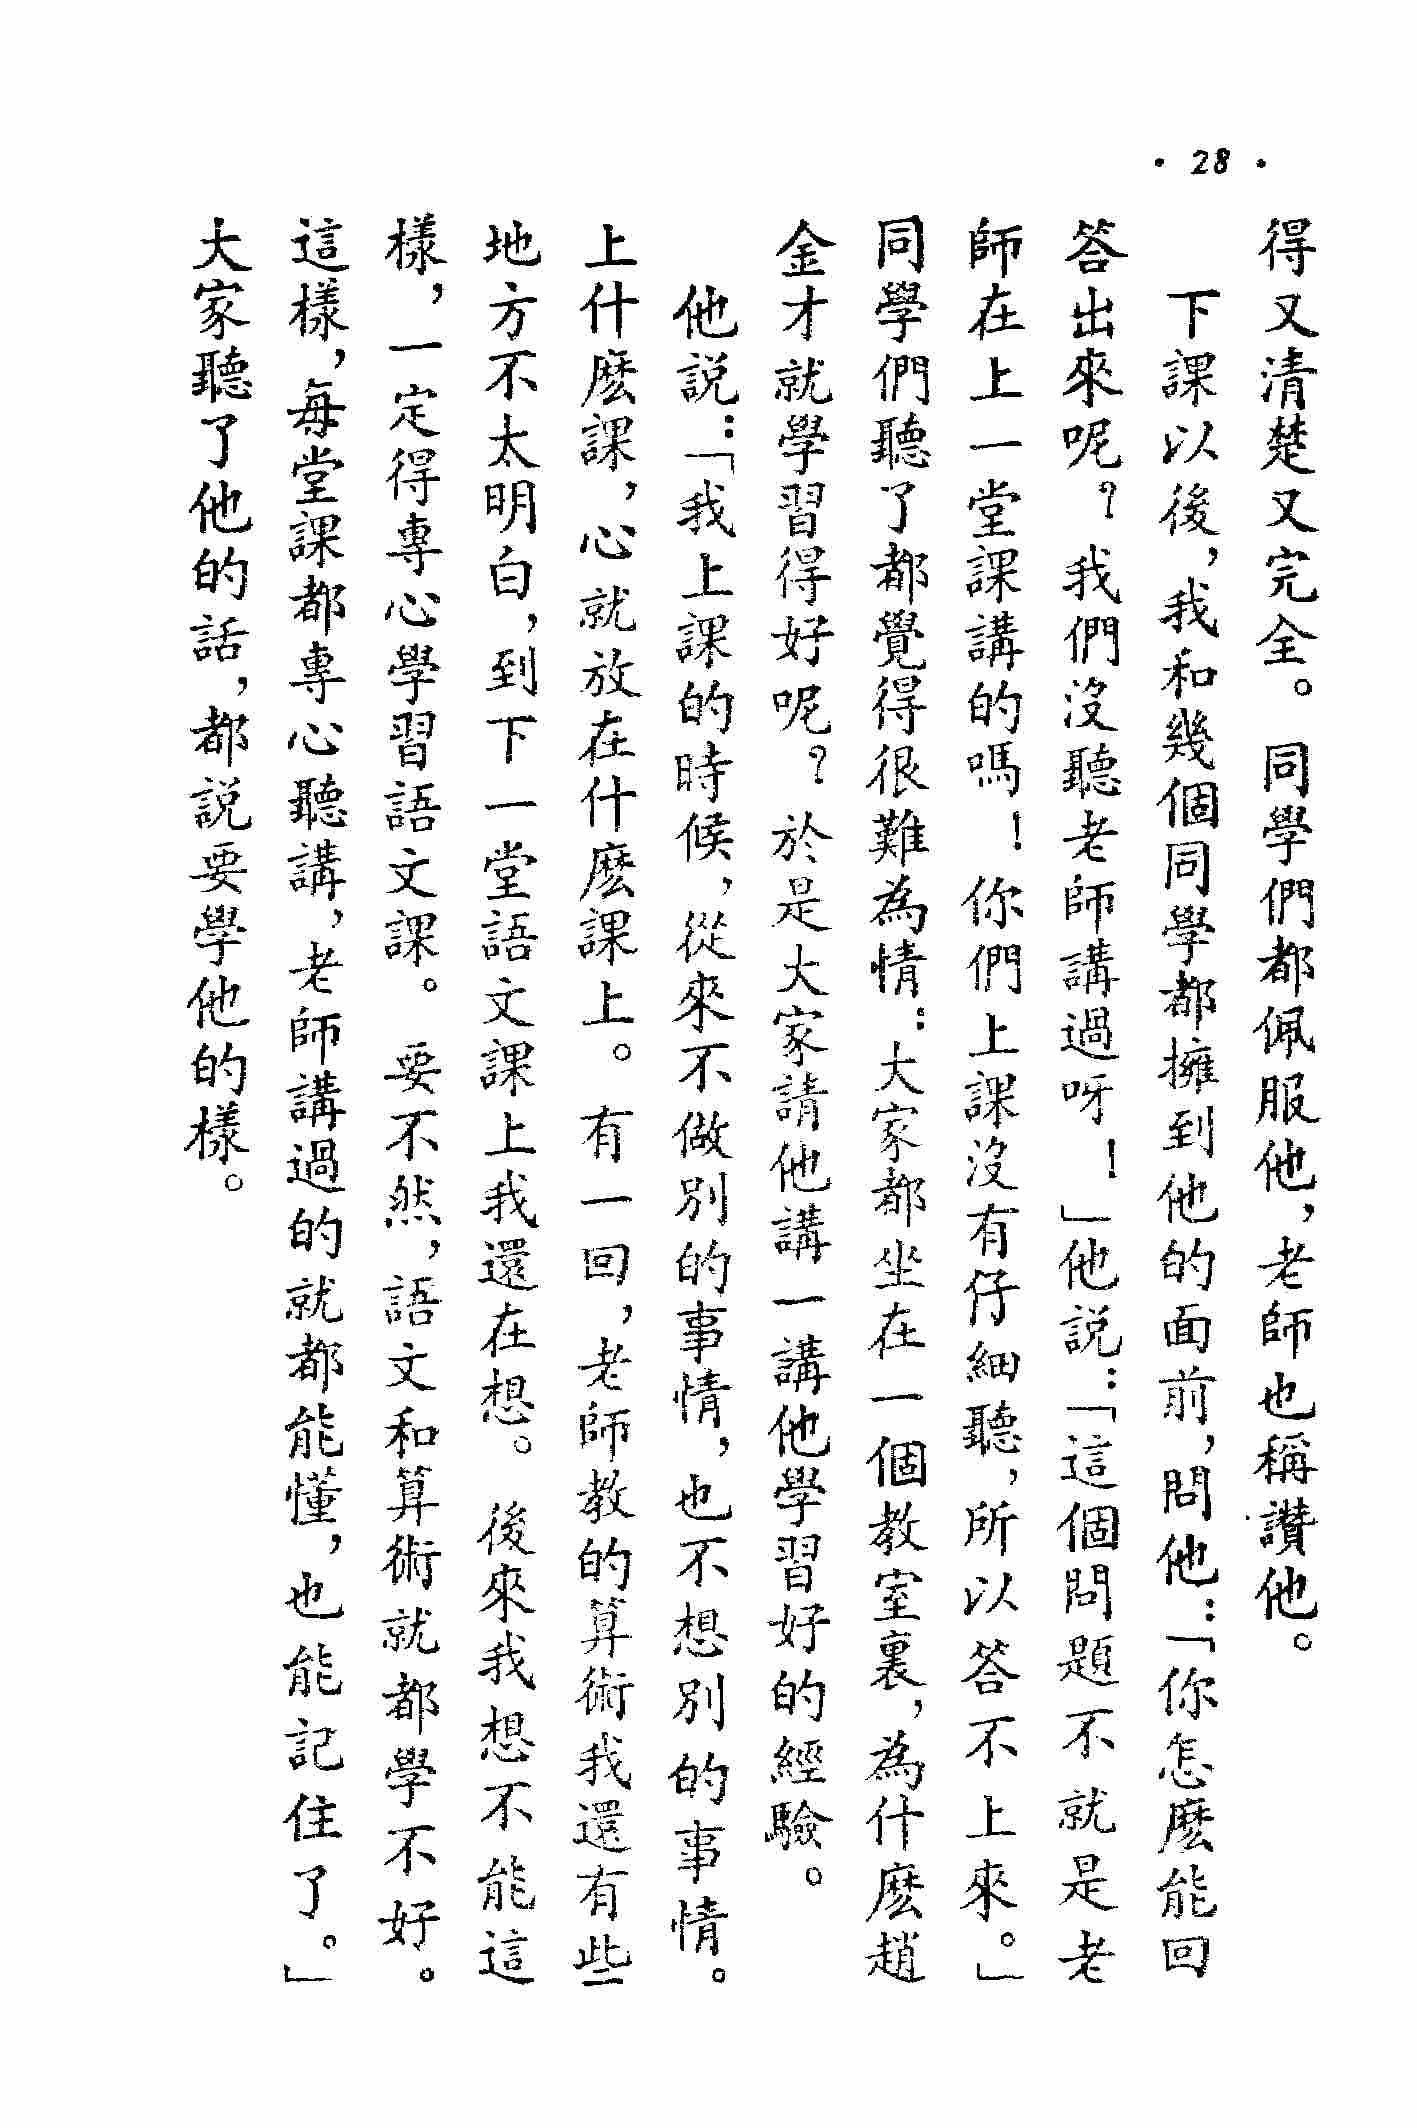 · 28 ·
得又清楚又完全。同學們都佩服他，老師也稱讚他。
下課以後，我和幾個同學都擁到他的面前，問他：「你怎麽能回
答出來呢？我們沒聽老師講過呀！」他説：「這個問題不就是老
師在上一堂課講的嗎！你們上課沒有仔細聽，所以答不上來。」
同學們聽了都覺得很難為情：大家都坐在一個教室裏，為什麽趙
金才就學習得好呢？於是大家請他講一講他學習好的經驗。
他説：「我上課的時候，從來不做別的事情，也不想別的事情。
上什麽課，心就放在什麽課上。有一回，老師教的算術我還有些
地方不太明白，到下一堂語文課上我還在想。後來我想不能這
樣，一定得專心學習語文課。要不然，語文和算術就都學不好。
這樣，每堂課都專心聽講，老師講過的就都能懂，也能記住了。」
大家聽了他的話，都説要學他的樣。